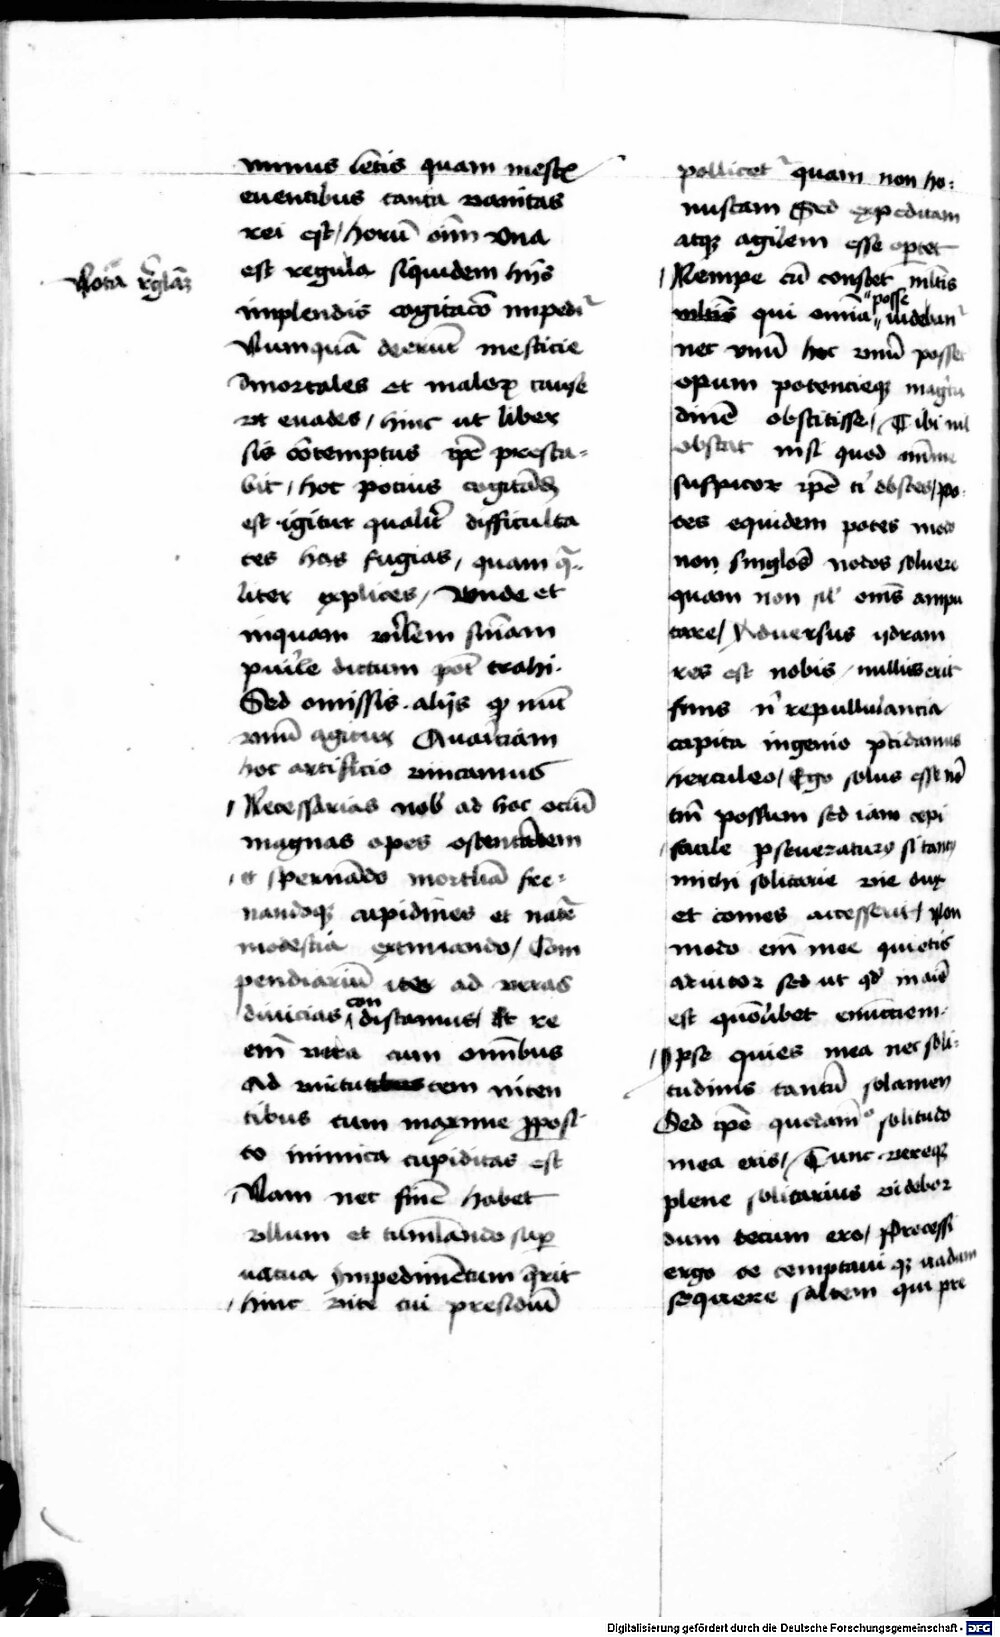 Nota rēglaꝫ
minus letis quam mestꝭ
euentibus tanta vanitas
rei est / horū oīm vna
est regula siquidem hijs
implendis cogitacō impedit᷑
Numquā deerūt mesticie
Inmortales et maloꝝ cause
vt euades / hinc ut liber
sis cōtemptus rpē presta-
bit / hoc pocius cogitādū
est igitur qualit᷑ difficulta
tes has fugias / quam q̄-
liter explices / Vnde et
inquam vtilem sn̄iam
puīle dictum pōt trahi.
Sed omissis alijs qꝫ nūc
vnū agitur Auariciam
hoc artificio vincamus
Necessarias nob̄ ad hoc ociū
magnas opes ostentātem
et spernādo mortliā fre-
nandoqꝫ cupidines et natē
modestia extimando / Com
pendiariū iter ad veras
diuicias con discamus / Et re
em̄ vera cum omībus
Ad virtutem niten
tibus tum maxime ꝓposi
to inimica cupiditas est
Nam nec finē habet
vllum et tumlāndo sup̄
uacua impedimētum q̄rit
hinc vite cui presidiū
pollicet᷑ quam non ho-
nustam Sed expeditam
atqꝫ agilem esse oꝑtet
Nempe cū constet ml̄tis
qui omīa posse uidebant᷑
nec vnū hoc vnū posse
opum potencieqꝫ magītu
dinē obstitisse / Tibi nil
obstat nisi quod minime
suspicor ip̄e t᷑ obstes / po-
tes equidem potes modo
non singlos nodos soluere
quam non sil᷑ oīs ampu
tare / Aduersus ydram
res est nobis / nullus erit
finis n᷑ repullulancia
capita ingenio p̄cidamus
herculeo / Ego solus esse nō
tm̄ possum sed iam cepi
facile ꝑseueraturꝰ si tantꝰ
michi solitarie vie dux
et comes accesserit / Non
modo em̄ mee quietis
adiutor sed ut qd̓ in aīo
est quōlibet enūctiem.
Ipse quies mea nec soli-
tudinis tantū solamen
Sed ip̄e quodāmo solitudo
mea eris / Tunc vereqꝫ
plene solitarius videbor
dum tecum ero / Processi
ergo te temptaui qꝫ uadam
sequere saltem qui pre